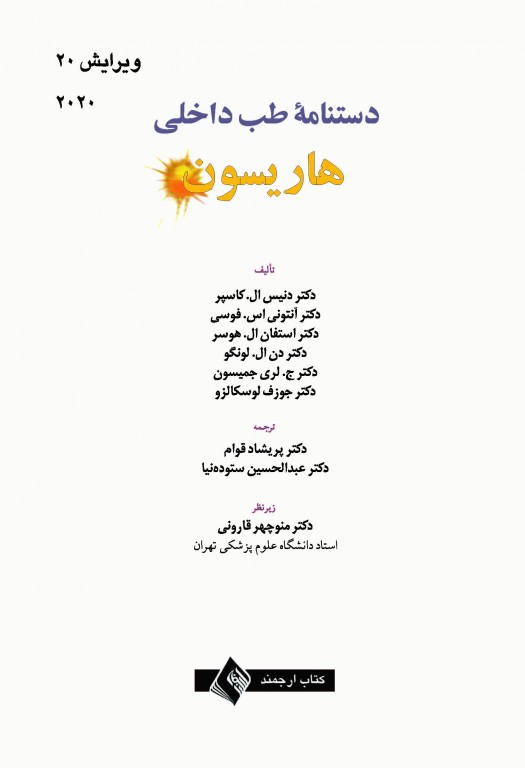 ویرایش ۲۰
۲۰۲۰
دستنامهٔ طب داخلی
هاریسون
تألیف
دکتر دنیس ال. کاسپر
دکتر آنتونی اس. فوسی
دکتر استفان ال. هوسر
دکتر دن ال. لونگو
دکتر ج. لری جمیسون
دکتر جوزف لوسکالزو
ترجمه
دکتر پریشاد قوام
دکتر عبدالحسین ستوده‌نیا
زیرنظر
دکتر منوچهر قارونی
استاد دانشگاه علوم پزشکی تهران
کتاب ارجمند